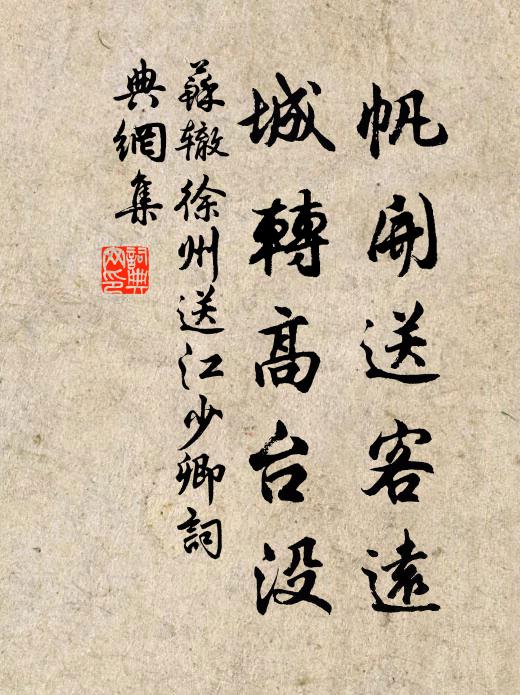 帆開送客遠
城轉高台没
蘇轍徐州送江少卿詞
典網集
詞典
文印